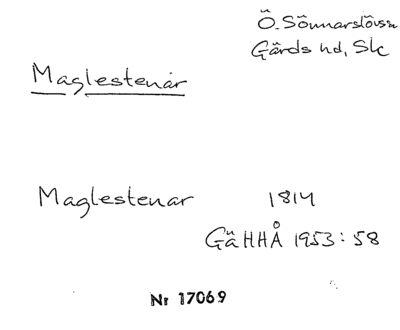 Ö. Sönnarslövs sn
Gärds hd, Sk
Maglestenar
Maglestenar 1814
GäHHÅ 1953:58
Nr 17069